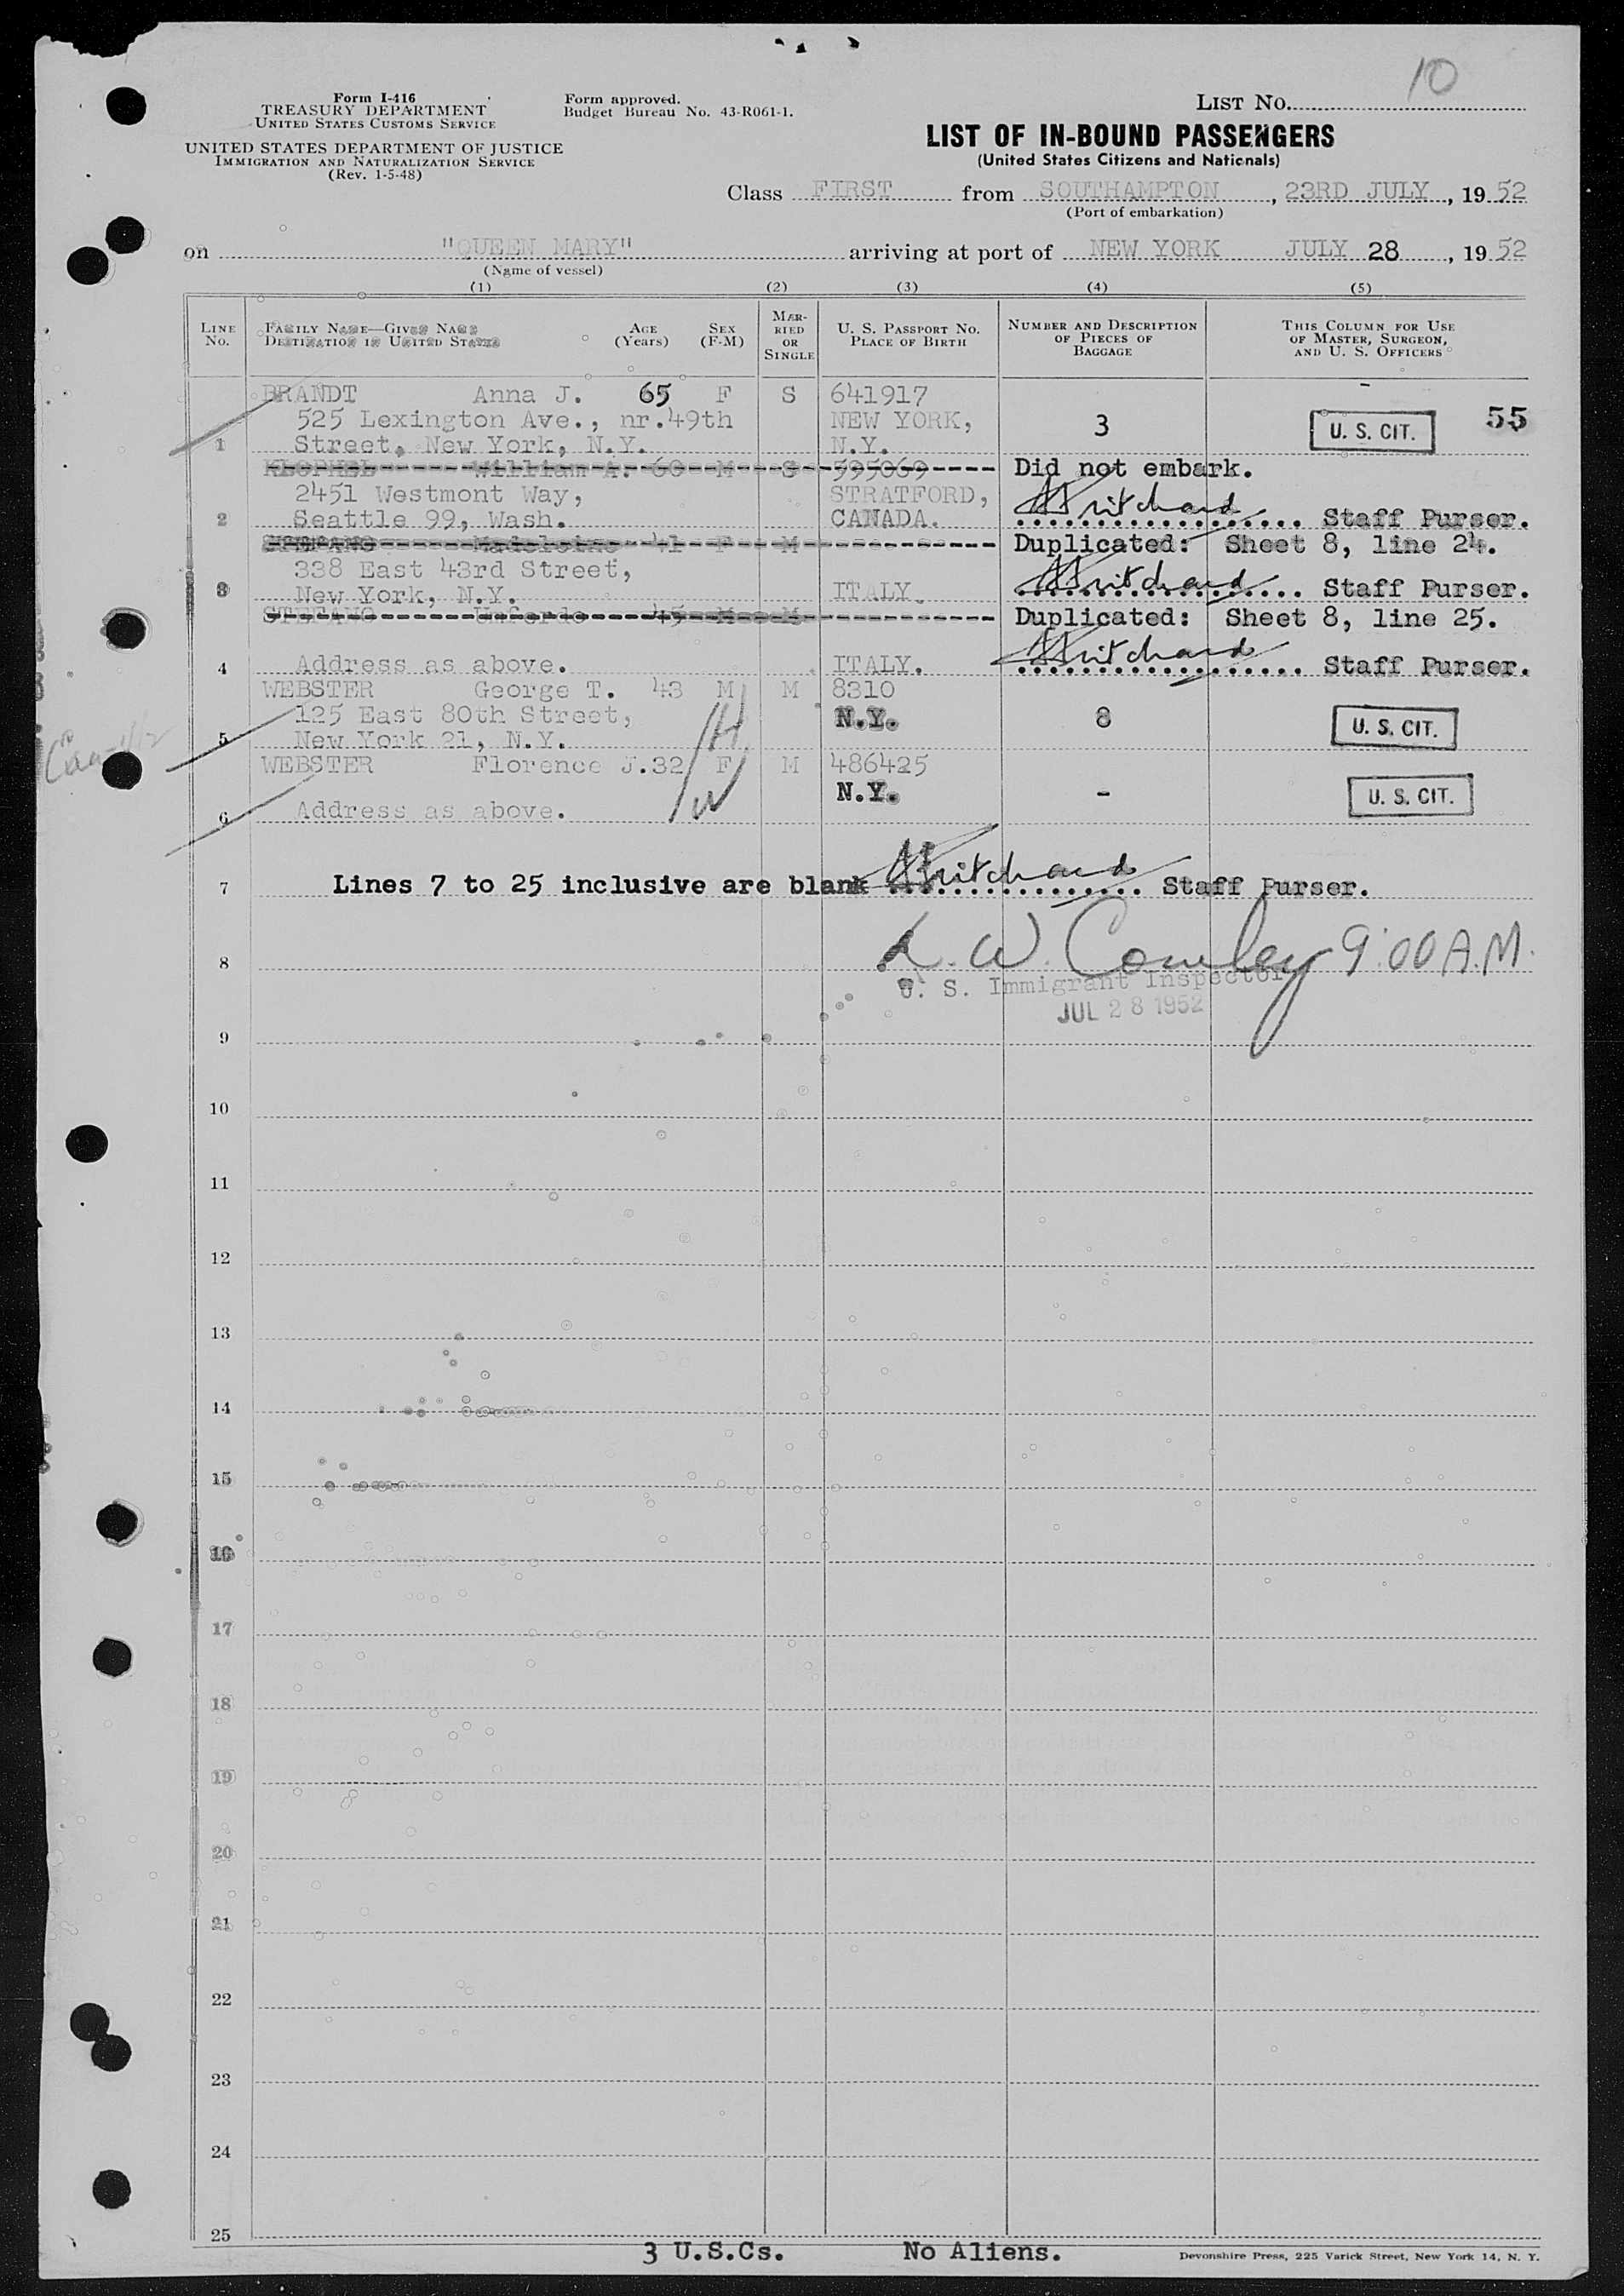 10
Form I-416
TREASURY DEPARTMENT
UNITED STATES CUSTOMS SERVICE
UNITED STATES DEPARTMENT OF JUSTICE
IMMIGRATION AND NATURALIZATION SERVICE
(Rev. 1-5-48)
Form approved.
Budget Bureau No. 43-R061-1.
LIST NO.
LIST OF IN-BOUND PASSENGERS
(United States Citizens and Nationals)
Class FIRST from SOUTHAMPTON, 23RD JULY, 19 52
(Port of embarkation)
on "QUEEN MARY" arriving at port of NEW YORK JULY 28, 19 52
(Name of vessel)
(1) (2) (3) (4) (5)
LINE NO.
FAMILY NAME—GIVEN NAME
DESTINATION IN UNITED STATES
AGE (Years)
SEX (F-M)
MAR-RIED OR SINGLE
U. S. PASSPORT NO.
PLACE OF BIRTH
NUMBER AND DESCRIPTION
OF PIECES OF
BAGGAGE
THIS COLUMN FOR USE
OF MASTER, SURGEON,
AND U. S. OFFICERS
BRANDT Anna J. 65 F S 641917
525 Lexington Ave., nr.49th NEW YORK, 3 U. S. CIT. 55
1 Street, New York, N.Y. N.Y.
William A. 60 M S 595069 Did not embark.
2451 Westmont Way, STRATFORD,
2 Seattle 99, Wash. CANADA. Pritchard Staff Purser.
STEFANO Madeleine 41 F M Duplicated: Sheet 8, line 24.
338 East 43rd Street,
3 New York, N.Y. ITALY. Pritchard Staff Purser.
STEFANO Umferdo 45 M M Duplicated: Sheet 8, line 25.
4 Address as above. ITALY. Pritchard Staff Purser.
WEBSTER George T. 43 M M 8310
125 East 80th Street, N.Y. 8 U. S. CIT.
5 New York 21, N.Y.
WEBSTER Florence J. 32 F M 486425
N.Y. - U. S. CIT.
6 Address as above.
H
W
7 Lines 7 to 25 inclusive are blank Pritchard Staff Purser.
8 L. W. Cowley 9:00 A.M.
U. S. Immigrant Inspector
JUL 28 1952
9
10
11
12
13
14
15
16
17
18
19
20
21
22
23
24
25
3 U.S.Cs. No Aliens.
Devonshire Press, 225 Varick Street, New York 14, N. Y.